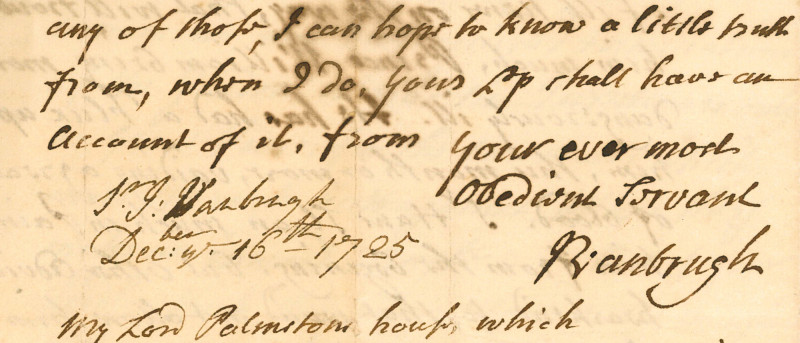 any of those, I can hope to know a little truth
from, when I do, your Lp shall have an
account of it, from your ever most
Obedient Servant
Sr J: Vanbrugh
Decber: ye 16th 1725
JVanbrugh
My Lord Palmston house, which